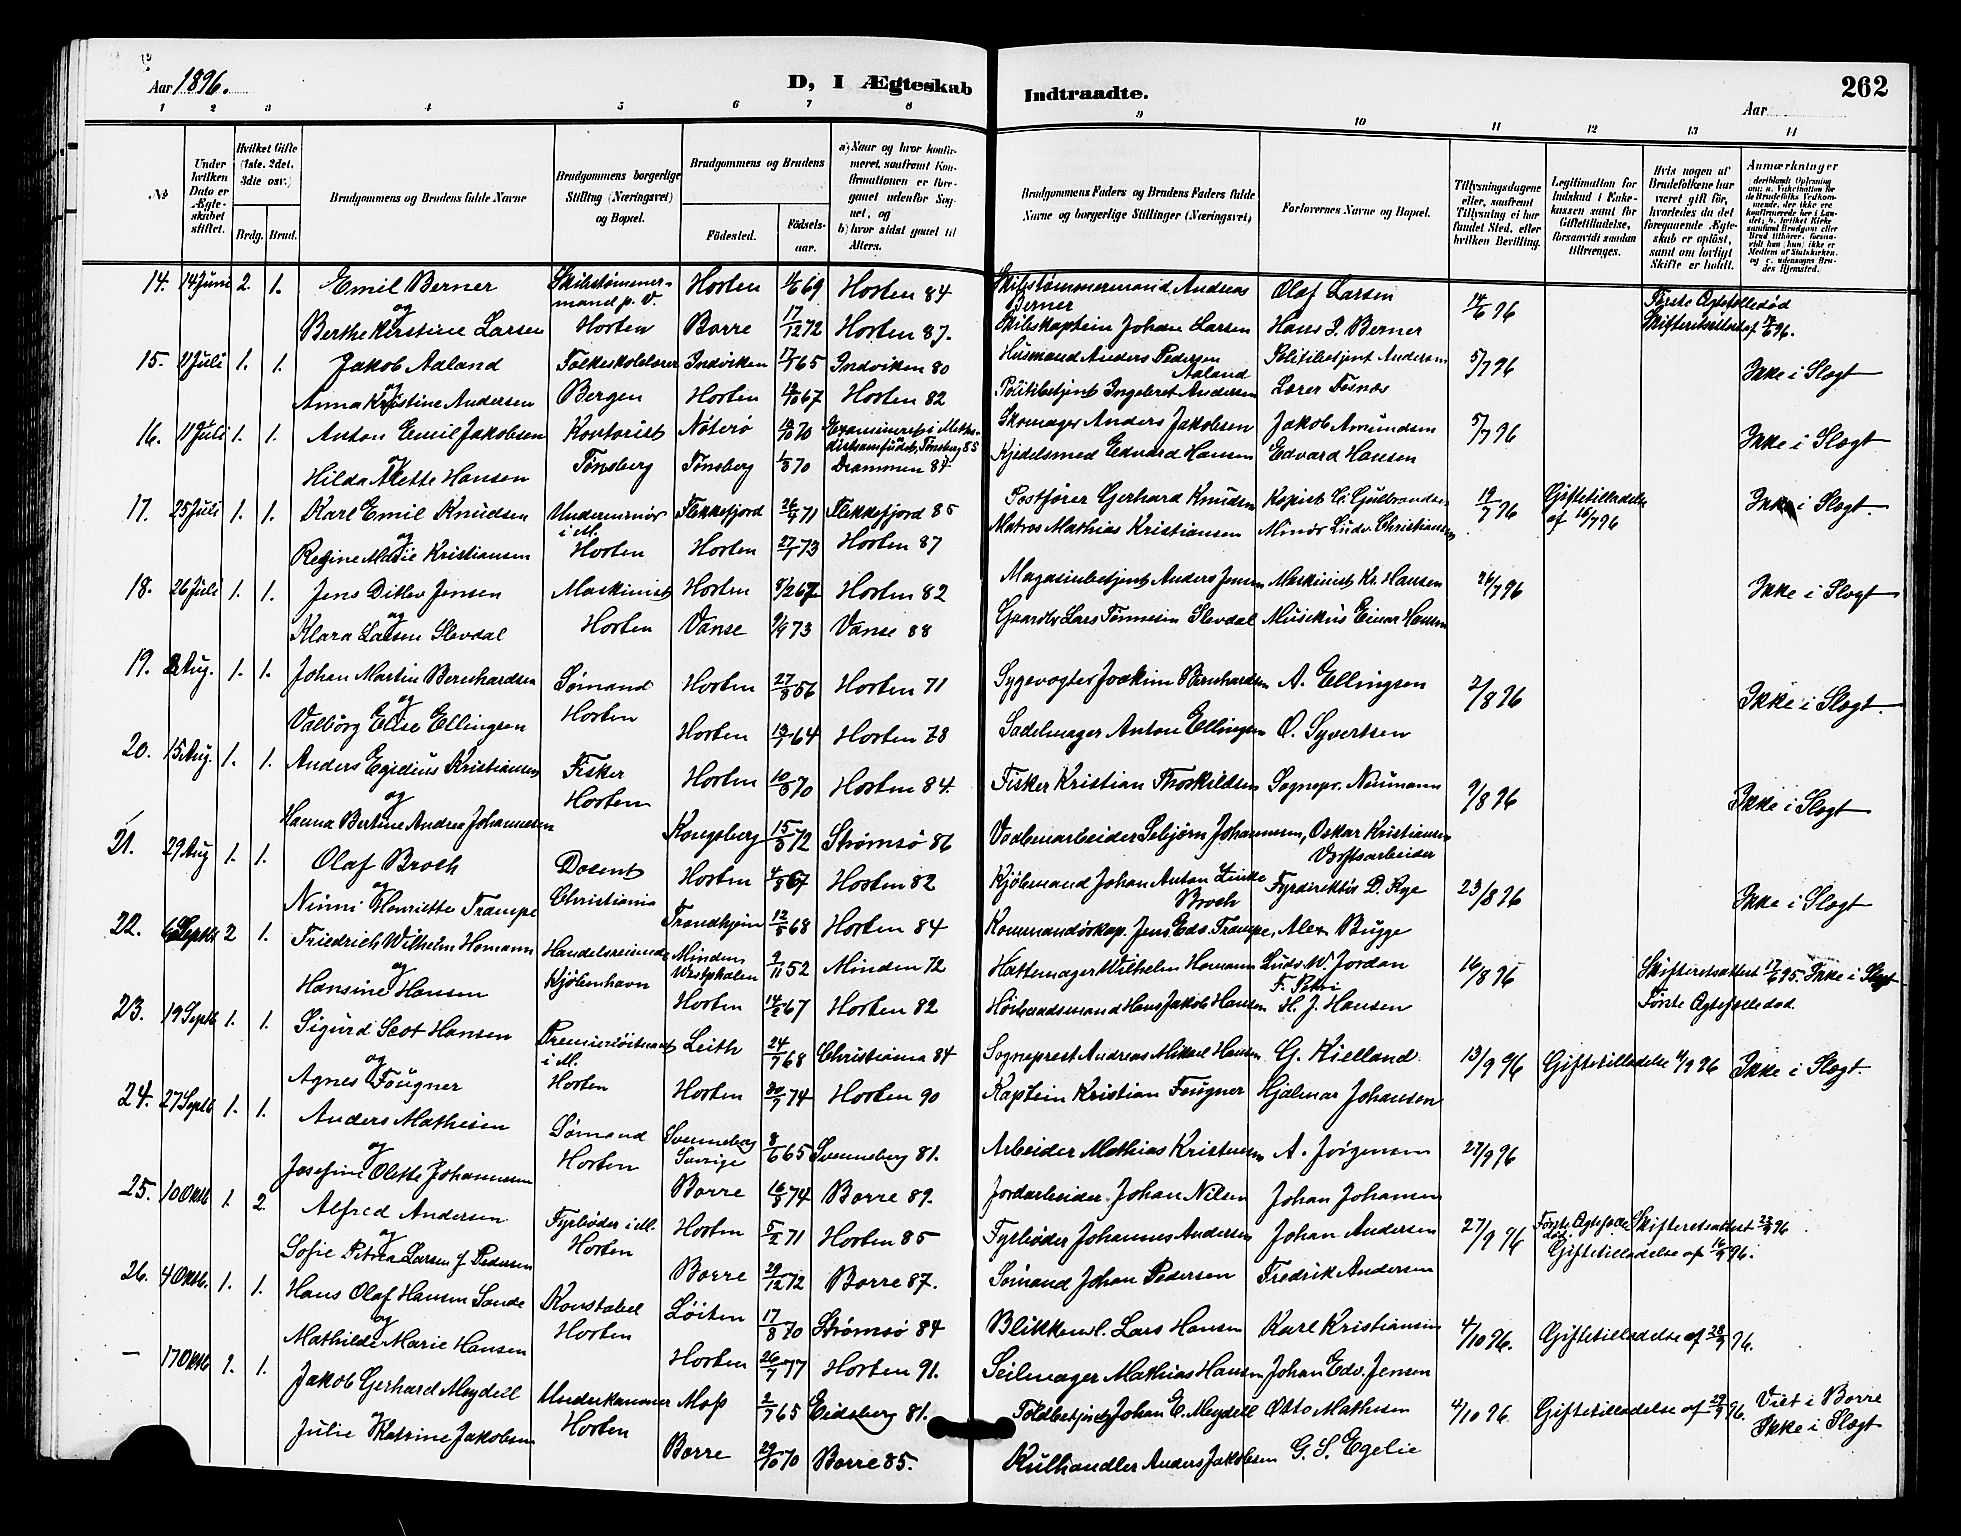 Aar 1896.
D, I Ægteskab Indtraadte.
262
Aar
1 2 3 4 5 6 7 8 9 10 11 12 13 14
No
Under hvilken Dato er Ægteskabet stiftet.
Hvilket Gifte (1ste. 2det. 3die osv.)
Brdg. Brud.
Brudgommens og Brudens fulde Navne
Brudgommens borgerlige Stilling (Næringsvei) og Bopæl.
Brudgommens og Brudens
Fødested.
Fødselsaar.
a) Naar og hvor konfirmeret, saafremt Konfirmationen er foregaaet udenfor Sognet, og
b) hvor sidst gaaet til Alters.
Brudgommens Faders og Brudens Faders fulde Navne og borgerlige Stillinger (Næringsvei)
Forlovernes Navne og Bopæl.
Tillysningsdagene eller, saafremt Tillysning ei har fundet Sted, efter hvilken Bevilling.
Legitimation for Indskud i Enkekassen samt for Giftetilladelse, forsaavidt saadan tiltrænges.
Hvis nogen af Brudefolkene har været gift før, hvorledes da det foregaaende Ægteskab er opløst, samt om lovligt Skifte er holdt.
Anmærkninger
14. 14 Juni 2. 1. Emil Berner Skibstømmermand p. V. Horten 69 Horten 84 Skibstømmermand Andreas Berner Olaf Larsen 14/6 96 Første Ægtefælle død
og
Berthe Kirstine Larsen Horten Borre 17/12 72 Horten 87. Skibskaptein Johan Larsen Hans J. Berner Skifteretsattest af 96.
15. 11 Juli 1. 1. Jakob Aaland Folkeskolelærer Indviken 65 Indviken 80 Husmand Anders Pedersen Aaland Politibetjent Andersen 5/7 96 Ikke i Slægt
og
Anna Kristine Andersen Bergen Horten 67 Horten 82 Politibetjent Ingebret Andersen Lærer Fosnæs
16. 11 Juli 1. 1. Anton Emil Jakobsen Kontorist Nøterø 70 Examineret i Methodistsamfundet, Tønsberg 85 Skomager Anders Jakobsen Jakob Amundsen 5/7 96 Ikke i Slægt
og
Hilda Alette Hansen Tønsberg Tønsberg 70 Drammen 84 Kjedelsmed Edvard Hansen Edvard Hansen
17. 25 Juli 1. 1. Karl Emil Knudsen Underminør i M. Flekkefjord 71 Flekkefjord 85 Postfører Gerhard Knudsen 19/7 96 Giftetilladelse af 16/7 96 Ikke i Slægt
og
Regine Marie Kristiansen Horten Horten 27/7 73 Horten 87 Matros Mathias Kristiansen Minør Ludv. Christiansen
18. 26 Juli 1. 1. Jens Ditlev Jensen Maskinist Horten 67 Horten 82 Magasinbetjent Anders Jensen Maskinist Kr. Hansen 26/7 96 Ikke i Slægt
og
Klara Larsen Slevdal Horten Vanse 9/9 73 Vanse 88 Gaardbr Lars Tønnesen Slevdal Musikus Einar Hansen
19. 2 Aug. 1. 1. Johan Martin Bernhardsen Sømand Horten 27/8 56 Horten 71 Sygevogter Joakim Bernhardsen A. Ellingsen 2/8 96 Ikke i Slægt.
og
Valborg Elise Ellingsen Horten Horten 64 Horten 78 Sadelmager Anton Ellingsen O. Syvertsen
20. 15 Aug. 1. 1. Anders Egidius Kristiansen Fisker Horten Horten 10/8 70 Horten 84. Fisker Kristian Thorkildsen Sognepr. Neumann 9/8 96 Ikke i Slægt
og
Hanna Bertine Andrea Johannesen Kongsberg 72 Strømsø 86 Johannesen, Oskar Kristiansen Værftsarbeider
21. 29 Aug 1. 1. Olaf Broch Docent Horten 4/8 67 Horten 82 Kjøbmand Johan Anton Zinke Broch Fyrdirektør D. Rye 23/8 96 Ikke i Slægt
og
Ninni Henriette Trampe Christiania Trondhjem 68 Horten 84 Kommandørkap. Jens Edv. Trampe, Alex Bugge
22. 6 Septb 2 1. Friedrich Wilhelm Homann Handelsreisende Minden Westphalen 2/11 52 Minden 72 Hattemager Wilhelm Homann Ludv. W. Jordan 16/8 96 Skifteretsattest 95. Ikke i Slægt
og
Hansine Hansen Kjøbenhavn Horten 67 Horten 82 Hans Jakob Hansen H. J. Hansen Første Ægtefælle død.
23. 19 Septb 1. 1. Sigurd Scot Hansen Premierløitnant i M. Leith 24/7 68 Christiania 84 Sogneprest Andreas Mikael Hansen G. Kielland. 13/9 96 Giftetilladelse 11/9 96 Ikke i Slægt.
og
Agnes Fougner Horten Horten 74 Horten 90 Kaptein Kristian Fougner Hjalmar Johansen
24. 27 Septb 1. 1. Anders Mathisen Sømand Svenneby Sverige 8/6 65 Svenneby 81. Arbeider Mathias Kristensen A. Jørgensen 27/9 96
og
Josefine Olette Johannesen Horten Borre 16/8 74 Borre 89. Jordarbeider Johan Nilsen Johan Johansen
25. 10 Oktb 1. 2. Alfred Andersen Fyrbøder i M. Horten 5/2 71 Horten 85 Fyrbøder Johannes Andersen Johan Andersen 27/9 96 Første Ægtefælle død Skifteretsattest 96
og
Sofie Petrea Larsen f Pedersen Horten Borre 29/12 72 Borre 87. Sømand Johan Pedersen Fredrik Andersen Giftetilladelse af 96.
26. 4 Oktb. 1. 1. Hans Olaf Hansen Sande Konstabel Løiten 17/8 70 Strømsø 84 Blikkensl. Lars Hansen Karl Kristiansen 4/10 96. Giftetilladelse af 96.
og
Mathilde Marie Hansen Horten Horten 26/7 77 Horten 91. Seilmager Mathias Hansen Johan Edv. Jensen
— 17 Oktb 1. 1. Jakob Gerhard Meydell Underkanoner Moss 2/7 65 Eidsberg 81. Toldbetjent Johan E. Meydell Otto Mathisen 4/10 96. Giftetilladelse af 96. Viet i Borre
Julie Katrine Jakobsen Horten Borre 70 Borre 85. Kulhandler Anders Jakobsen G. S. Egelie Ikke i Slægt